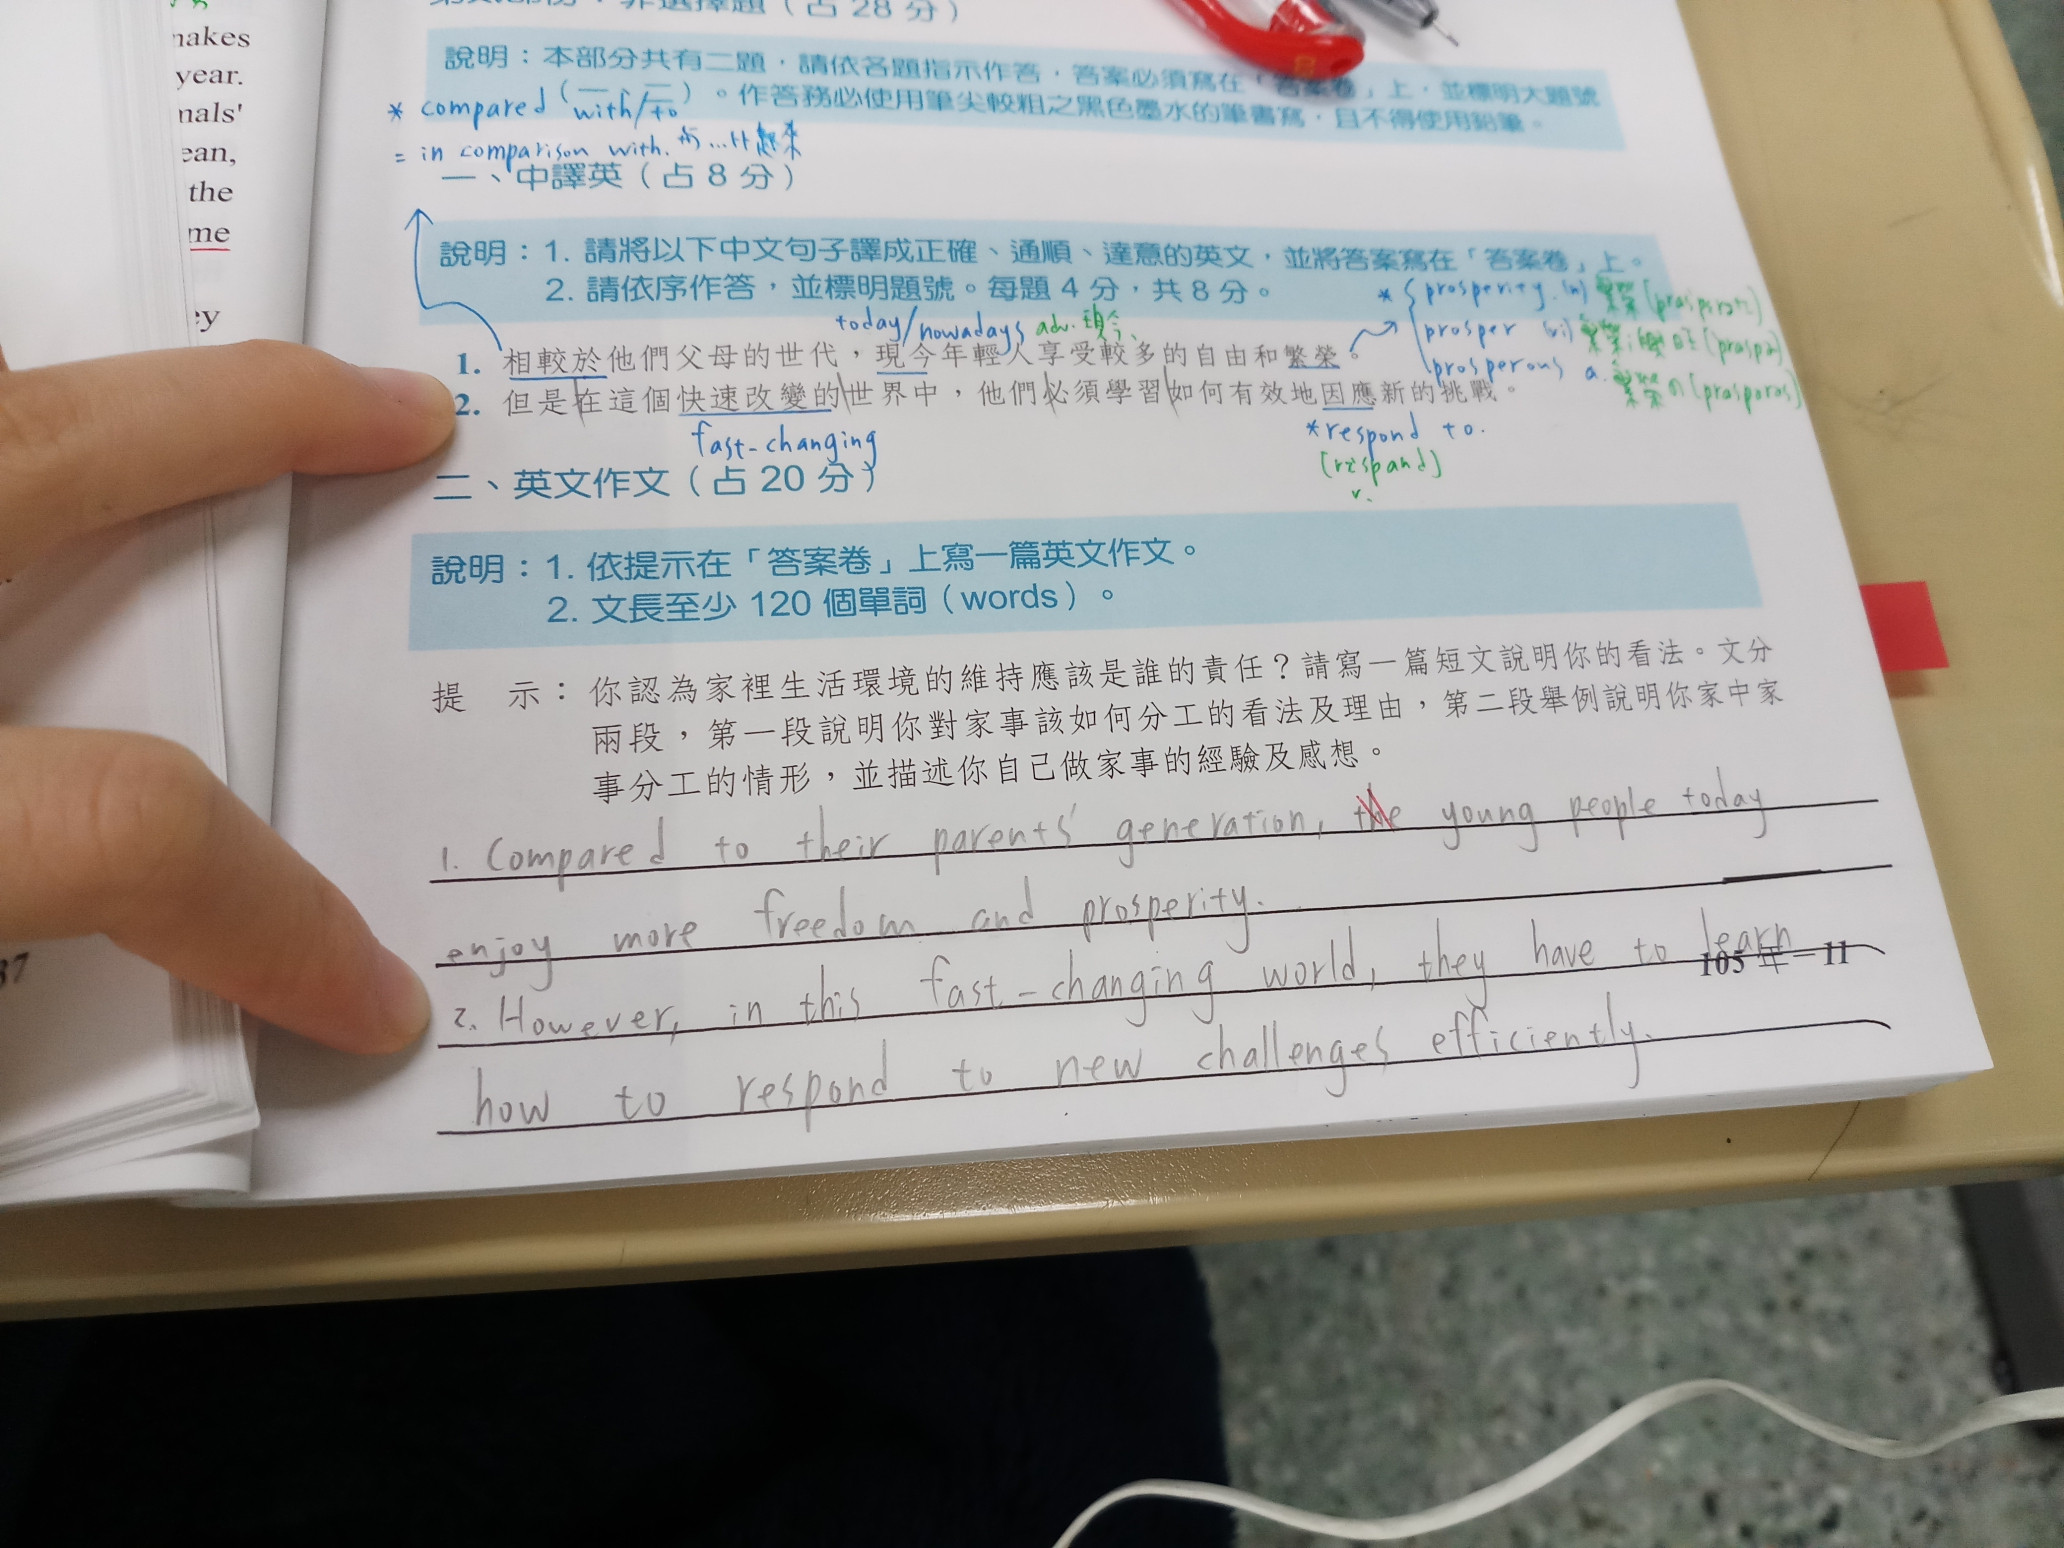 nakes
year.
nals'
ean,
the
me
ey
37
非選擇題（占 28 分）
說明：本部分共有二題，請依各題指示作答，答案必須寫在「答案卷」上，並標明大題號
。作答務必使用筆尖較粗之黑色墨水的筆書寫，且不得使用鉛筆。
* compared (with/to)
= in comparison with. 與...比起來
一、中譯英（占 8 分）
說明：1. 請將以下中文句子譯成正確、通順、達意的英文，並將答案寫在「答案卷」上。
2. 請依序作答，並標明題號。每題 4 分，共 8 分。
* prosperity (n) 繁榮
prosper (vi)
prosperous a. 繁榮の
today/nowadays adv. 現今
1. 相較於他們父母的世代，現今年輕人享受較多的自由和繁榮。
2. 但是在這個快速改變的世界中，他們必須學習如何有效地因應新的挑戰。
fast-changing
*respond to.
v.
二、英文作文（占 20 分）
說明：1. 依提示在「答案卷」上寫一篇英文作文。
2. 文長至少 120 個單詞（words）。
提 示：你認為家裡生活環境的維持應該是誰的責任？請寫一篇短文說明你的看法。文分
兩段，第一段說明你對家事該如何分工的看法及理由，第二段舉例說明你家中家
事分工的情形，並描述你自己做家事的經驗及感想。
1. Compared to their parents' generation, the young people today
enjoy more freedom and prosperity.
2. However, in this fast-changing world, they have to learn
how to respond to new challenges efficiently.
105 年－11